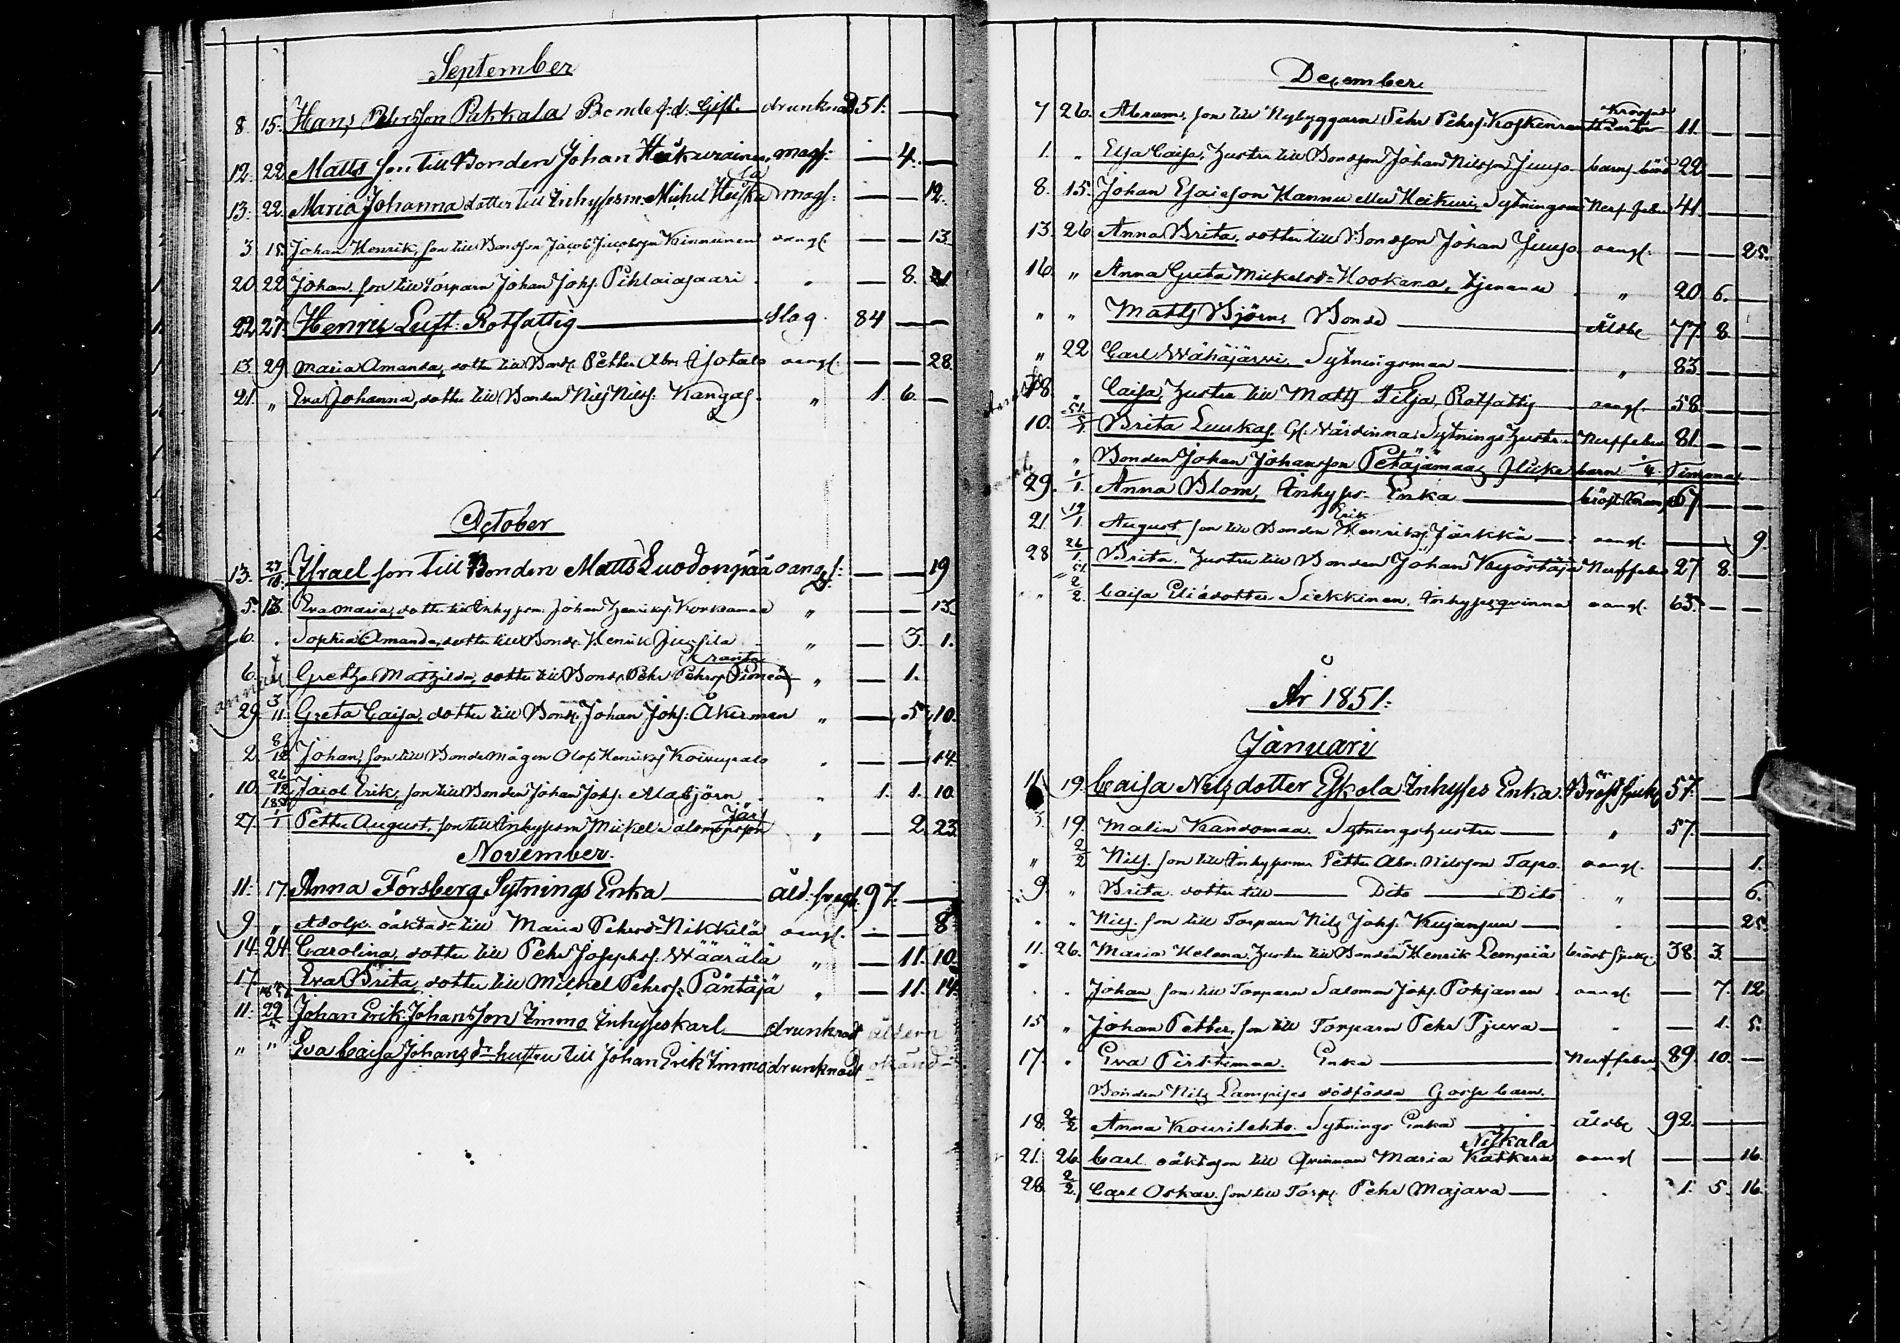 September
8 15. Hans Pehrsson Pukkala Bonde f.d. Gift drunknad 51. — —
12. 22. Matts son till Bonden Johan magf: — 4. —
13. 22. Maria Johanna dotter till Inhysesm. Michel Heiska magf. — — 12.
3. 15. Johan Henrik, son till Bondson Jacob Jacobson Kinnunen oangf. — — 13
20 22 Johan, son till Torparn Johan Johs. Pihlaiasaari „ — 8. 21
22. 27. Henric Luft. Rotfattig — Slag 84 — —
13. 29 Maria Amanda, dotter till Bond. Petter Abr. oangf. — — 28.
21. „ Eva Johanna, dotter till Bonden Nils Nilss. Kangas. „ 1. 6. —
October
13. 27/10. Israel son till Bonden Matts Luodonpää oangf: — — 19
5. 13. Eva Maria, dotter till Inhysesm. Johan Henriks. „ — — 13.
6. . Sophia Amanda, dotter till Bond. Henrik Jussila „ — 3. 1.
Kranta
6. Greta Mathilda, dotter till Bond. Pehr Pehrs. „ — 1.
29. 3/11. Greta Caisa, dotter till Bond. Johan Johs. Åkerman „ — 5. 10.
2. 8/12 Johan, son till Bondemågen Olof Henriks. Koivupalo . — — 14.
10. 26/12 Jacob Erik, son till Bonden Johan Johs. Alabjörn „ 1. 1. 10.
1851
27. 1/1 Petter August, son till Inhysesm Mickel Salomonsson „ — 2. 23.
November.
11. 17. Anna Forsberg Sytnings Enka — åld. svagh. 97. —
9. „ Adolf. oäkta till Maria Pehrsd. Nikkilä oangf. — — 8.
14. 24. Carolina, dotter till Pehr Josephs. Wäärälä „ — 11. 10.
17. Eva Brita, dotter till Michel Pehrs. Päntäjä „ — 11. 14.
11. 29/5 Johan Erik Johansson Immo Inhyseskarl — drunknadt åldern
„ „ Eva Caisa Johansdr. hustru till Johan Erik Immo drunknadt okänd
December
7 26. Abram, son till Nybyggarn Pehr Pehrs. Koskenranta 11. — —
1. „ Elsa Caisa, hustru till Bondson Johan Nilsson Juuso. barnsbörd 22 — —
8. 15. Johan Esaiesson Hannu eller Heikuri, Sytningsman Nervfeber 41. — —
13. 26 Anna Brita, dotter till Bondson Johan Juuso oangf. — — 25.
16. „ Anna Greta Mickelsd. Hookana, tjenande „ 20 6. —
„ „ Matts Björn, Bonde — Åldr. 77 8. —
„ 22 Carl Wähäjärvi, Sytningsman — „ 83. —
18. „ Caisa, hustru till Matts Filja, Rotfattig oangf. 58. —
10. Brita Luukas. Gl. Värdinna, Sytnings hustru Nervfeber 81. —
„ Bonden Johan Johansson Petäjämaa, flicke barn 1/4 Timma
29. 1/1. Anna Blom, Inhyses Enka — bröst kram 67 —
Erik
21. 19/1. August, son till Bonden Henriks. Järkkä — oangf. — — 9.
28 26/1 Brita. hustru till Bonden Johan Kyöstäjä Nervfeber 27 8. —
„ 2/2. Caisa Eliedotter Siekkinen, Inhysesqvinna oangf. 63. — —
År 1851.
Januari
11. 19. Caisa Nilsdotter Eskola Inhyses Enka. Bröstsjukd. 57. —
5. 19. Malin Kandomaa. Sytningshustru — „ 57. —
„ 2/2 Nils. son till Inhysesm. Petter Abr. Nilsson Tapo. oangf. — — 1.
9. „ Brita dotter till — Dito — Dito „ — 6.
„ „ Nils. son till Torparn Nils Johs. Kujansuu — . — 25.
11. 26. Maria Helena, hustru till Bonden Henrik Lempiä bröst sjukd. 38 3. —
. . Johan son till Torparn Salomon Johs. Pohjanen oangf. — 7. 12
15 „ Johan Petter, son till Torparn Pehr Pjura — . — 1. 5.
17. „ Eva Pirttimaa. Enka — Nervfeber 89. 10. —
Bonden Nils Lampises dödfödda Gosse barn.
18. 2/2 Anna Kourilehto. Sytnings Enka — åldr. 92. —
Niskala
21. 26. Carl oäkta son till Qvinnan Maria Katkera oangf — — 16.
28. 2/2. Carl Oskar. son till Torp. Pehr Majava — . 1. 5. 16.